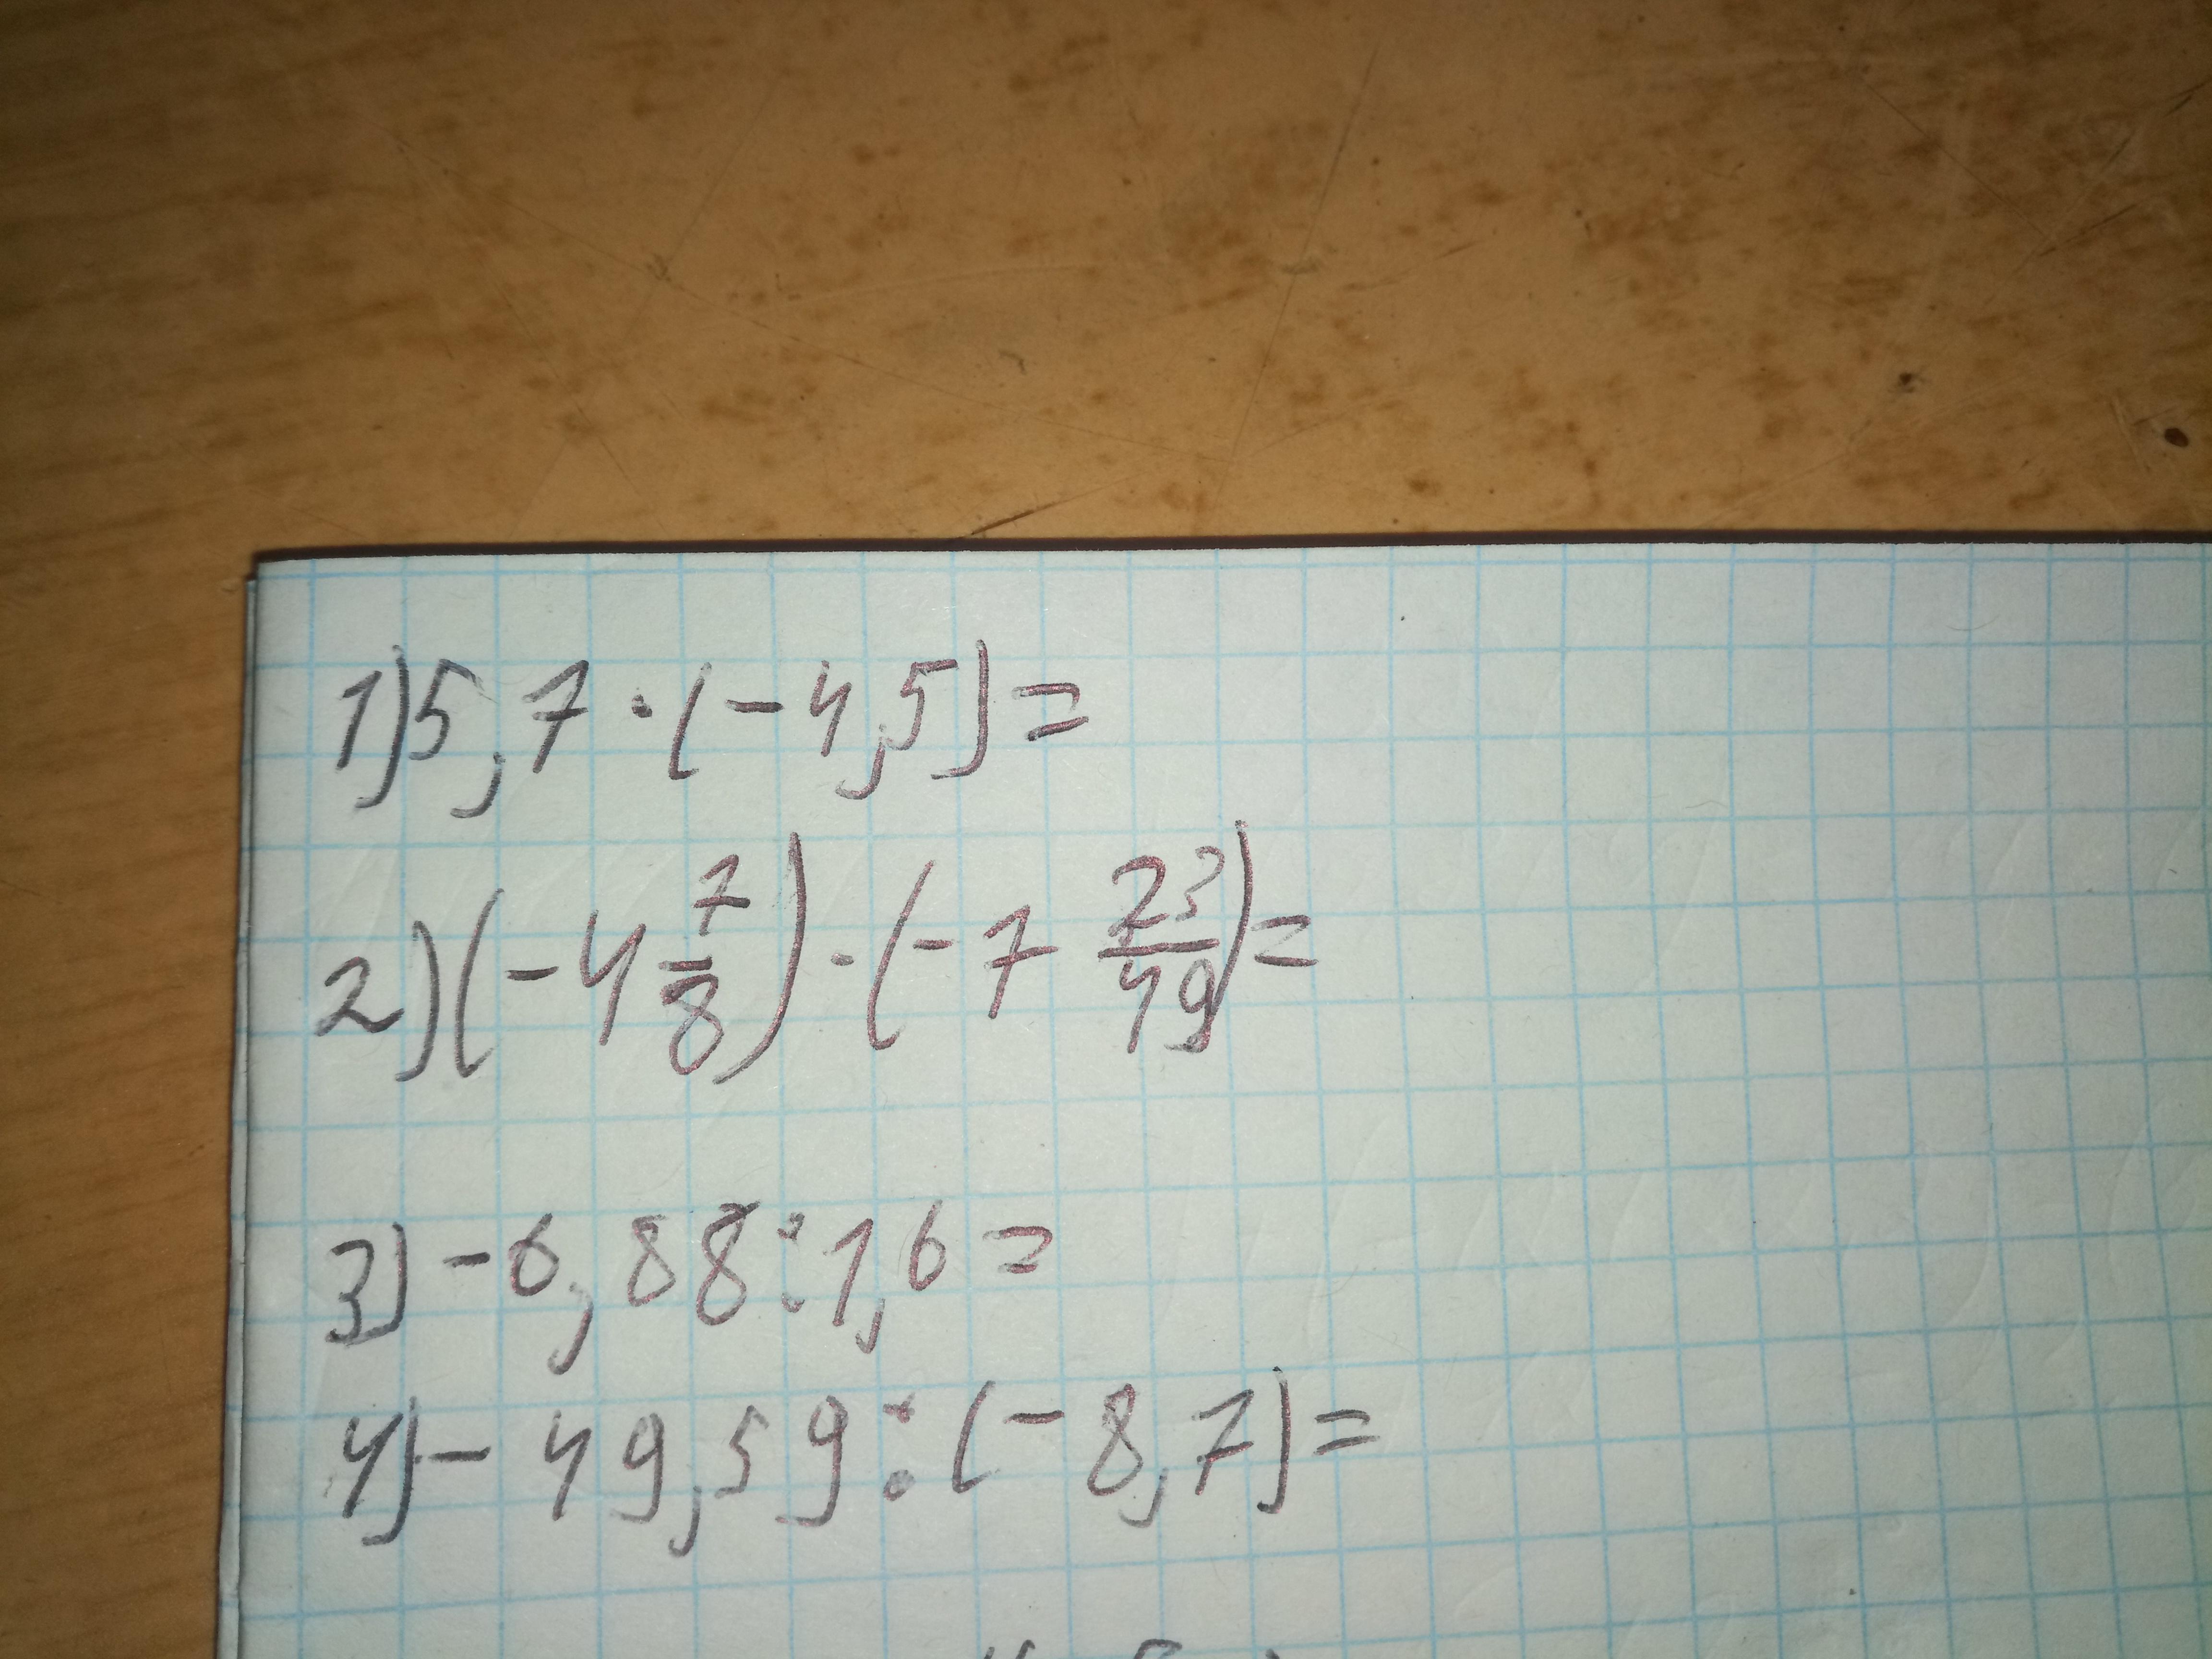 1) 5,7 · (-4,5) =
2) (-4 7/8) · (-7 23/49) =
3) -6,88 : 1,6 =
4) - 49,59 : (-8,7) =